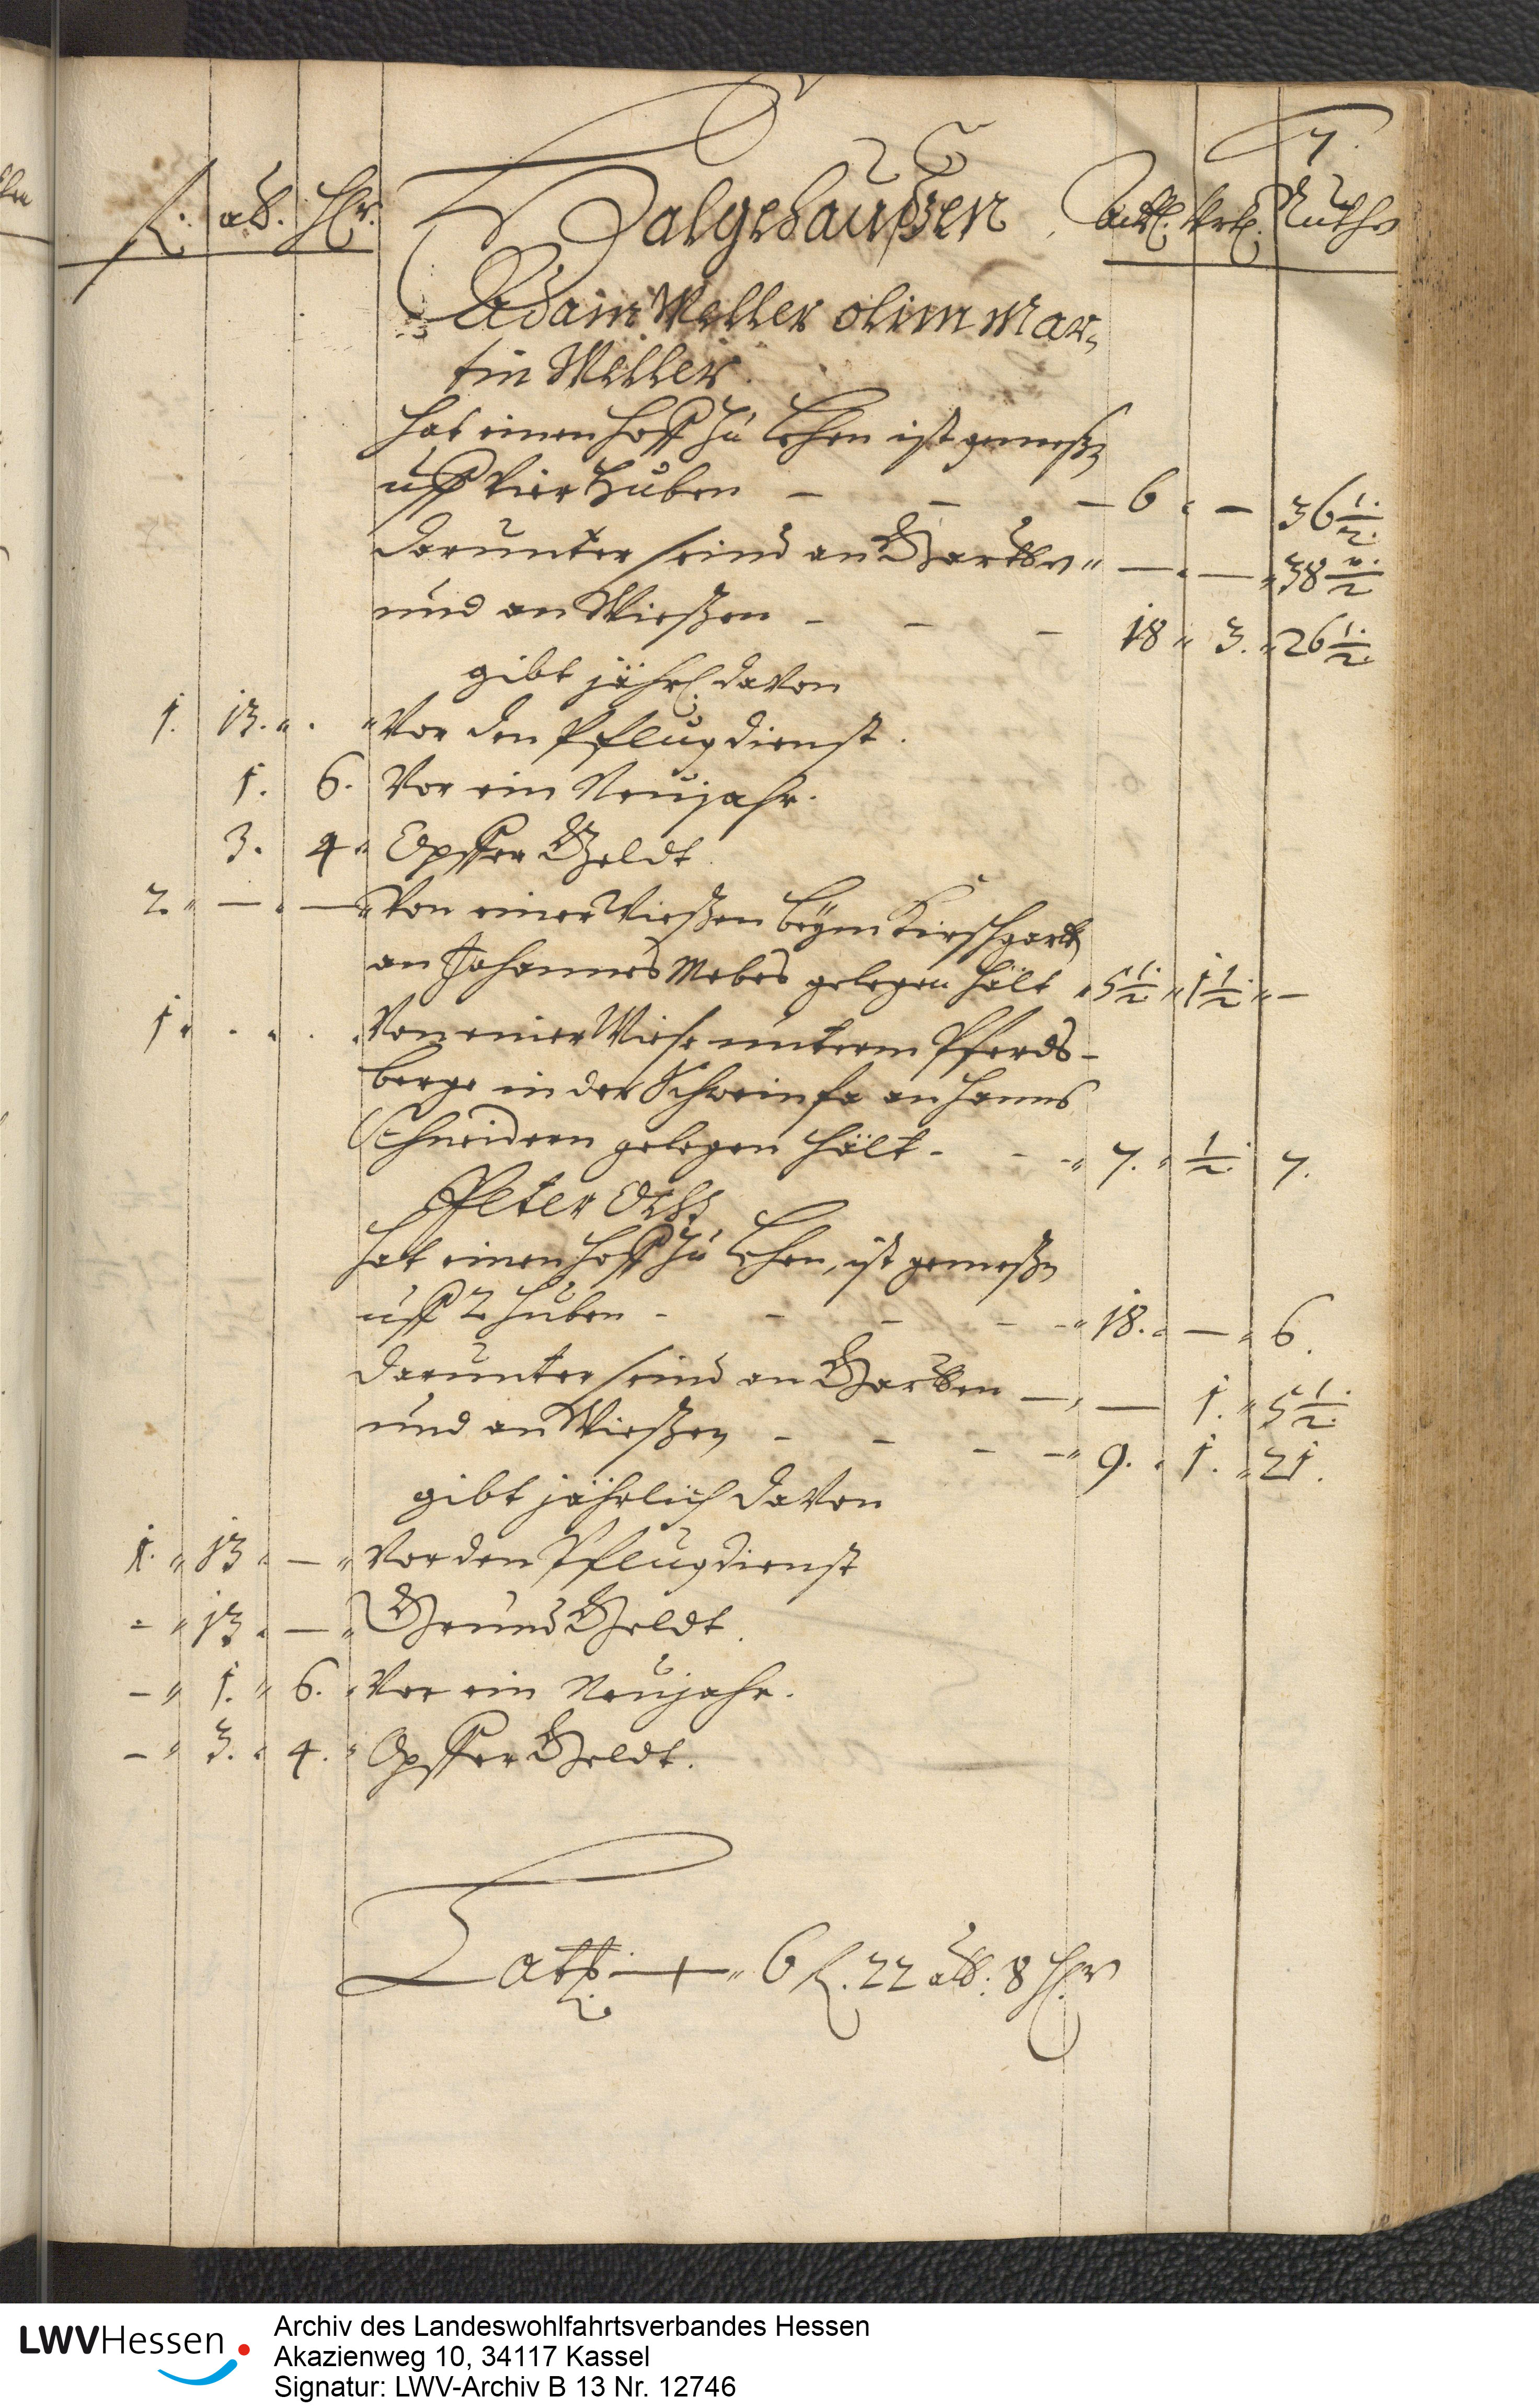 7.
fl. alb. hlr. Halgehaußen Ack. Vrt. Ruthe
Adam Weller olim Mar„
tin Weller.
hat einen hoff zu Lehen ist gemeßen
uff vier huben - - - 6 „ - 36 1/2.
darunter seind an Garthen „ — „ — „ 38 1/2
und an Wießen - - - 18 „ 3. „ 26 1/2.
gibt jährl. davon
1. 13. „ . „ Vor den Pflugdienst.
1. 6. Vor ein Neujahr.
3. 4 „ Opffer Geldt.
2. „ — „ — „ Von einer Wießen beym Kirschgarten
an Johannes Mebes gelegen hält „ 5 1/2. „ 1 1/2. „ —
1 „ . „ . „ Von einer Wiese unterm Pferds-
berge in der Schweinfa an Hanns
Schneidern gelegen hält - - - „ 7. „ 1/2. 7.
Peter
hat einen hoff zu Lehen, ist gemeßen
uff 2 huben - - - - - „ 18. „ — „ 6.
darunter seind an Garthen — „ — 1. „ 5 1/2.
und an Wießen - - - — „ 9. „ 1. „ 21.
gibt jährlich davon
1. „ 13 „ — „ Vor den Pflugdienst
- „ 13 „ — „ Grund Geldt.
- „ 1. „ 6. „ Vor ein Neujahr.
- „ 3. „ 4. „ Opffer Geldt.
Latt. — „ 6 fl. 22 alb. 8 hlr
LWVHessen
Archiv des Landeswohlfahrtsverbandes Hessen
Akazienweg 10, 34117 Kassel
Signatur: LWV-Archiv B 13 Nr. 12746